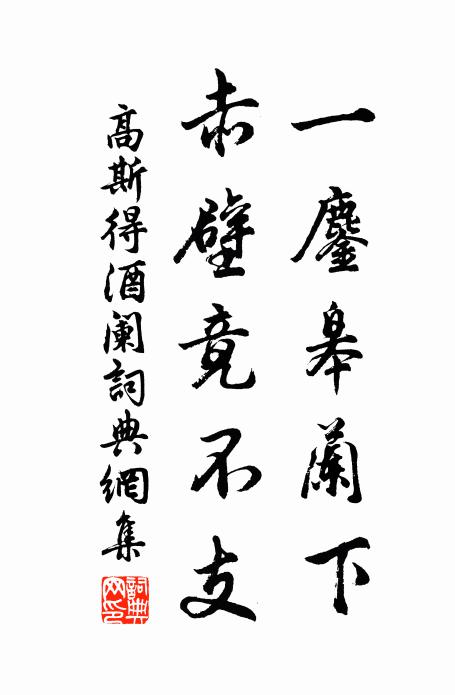 一鏖皋蘭下
赤壁竟不支
高斯得酒阑詞典網集
詞典網印